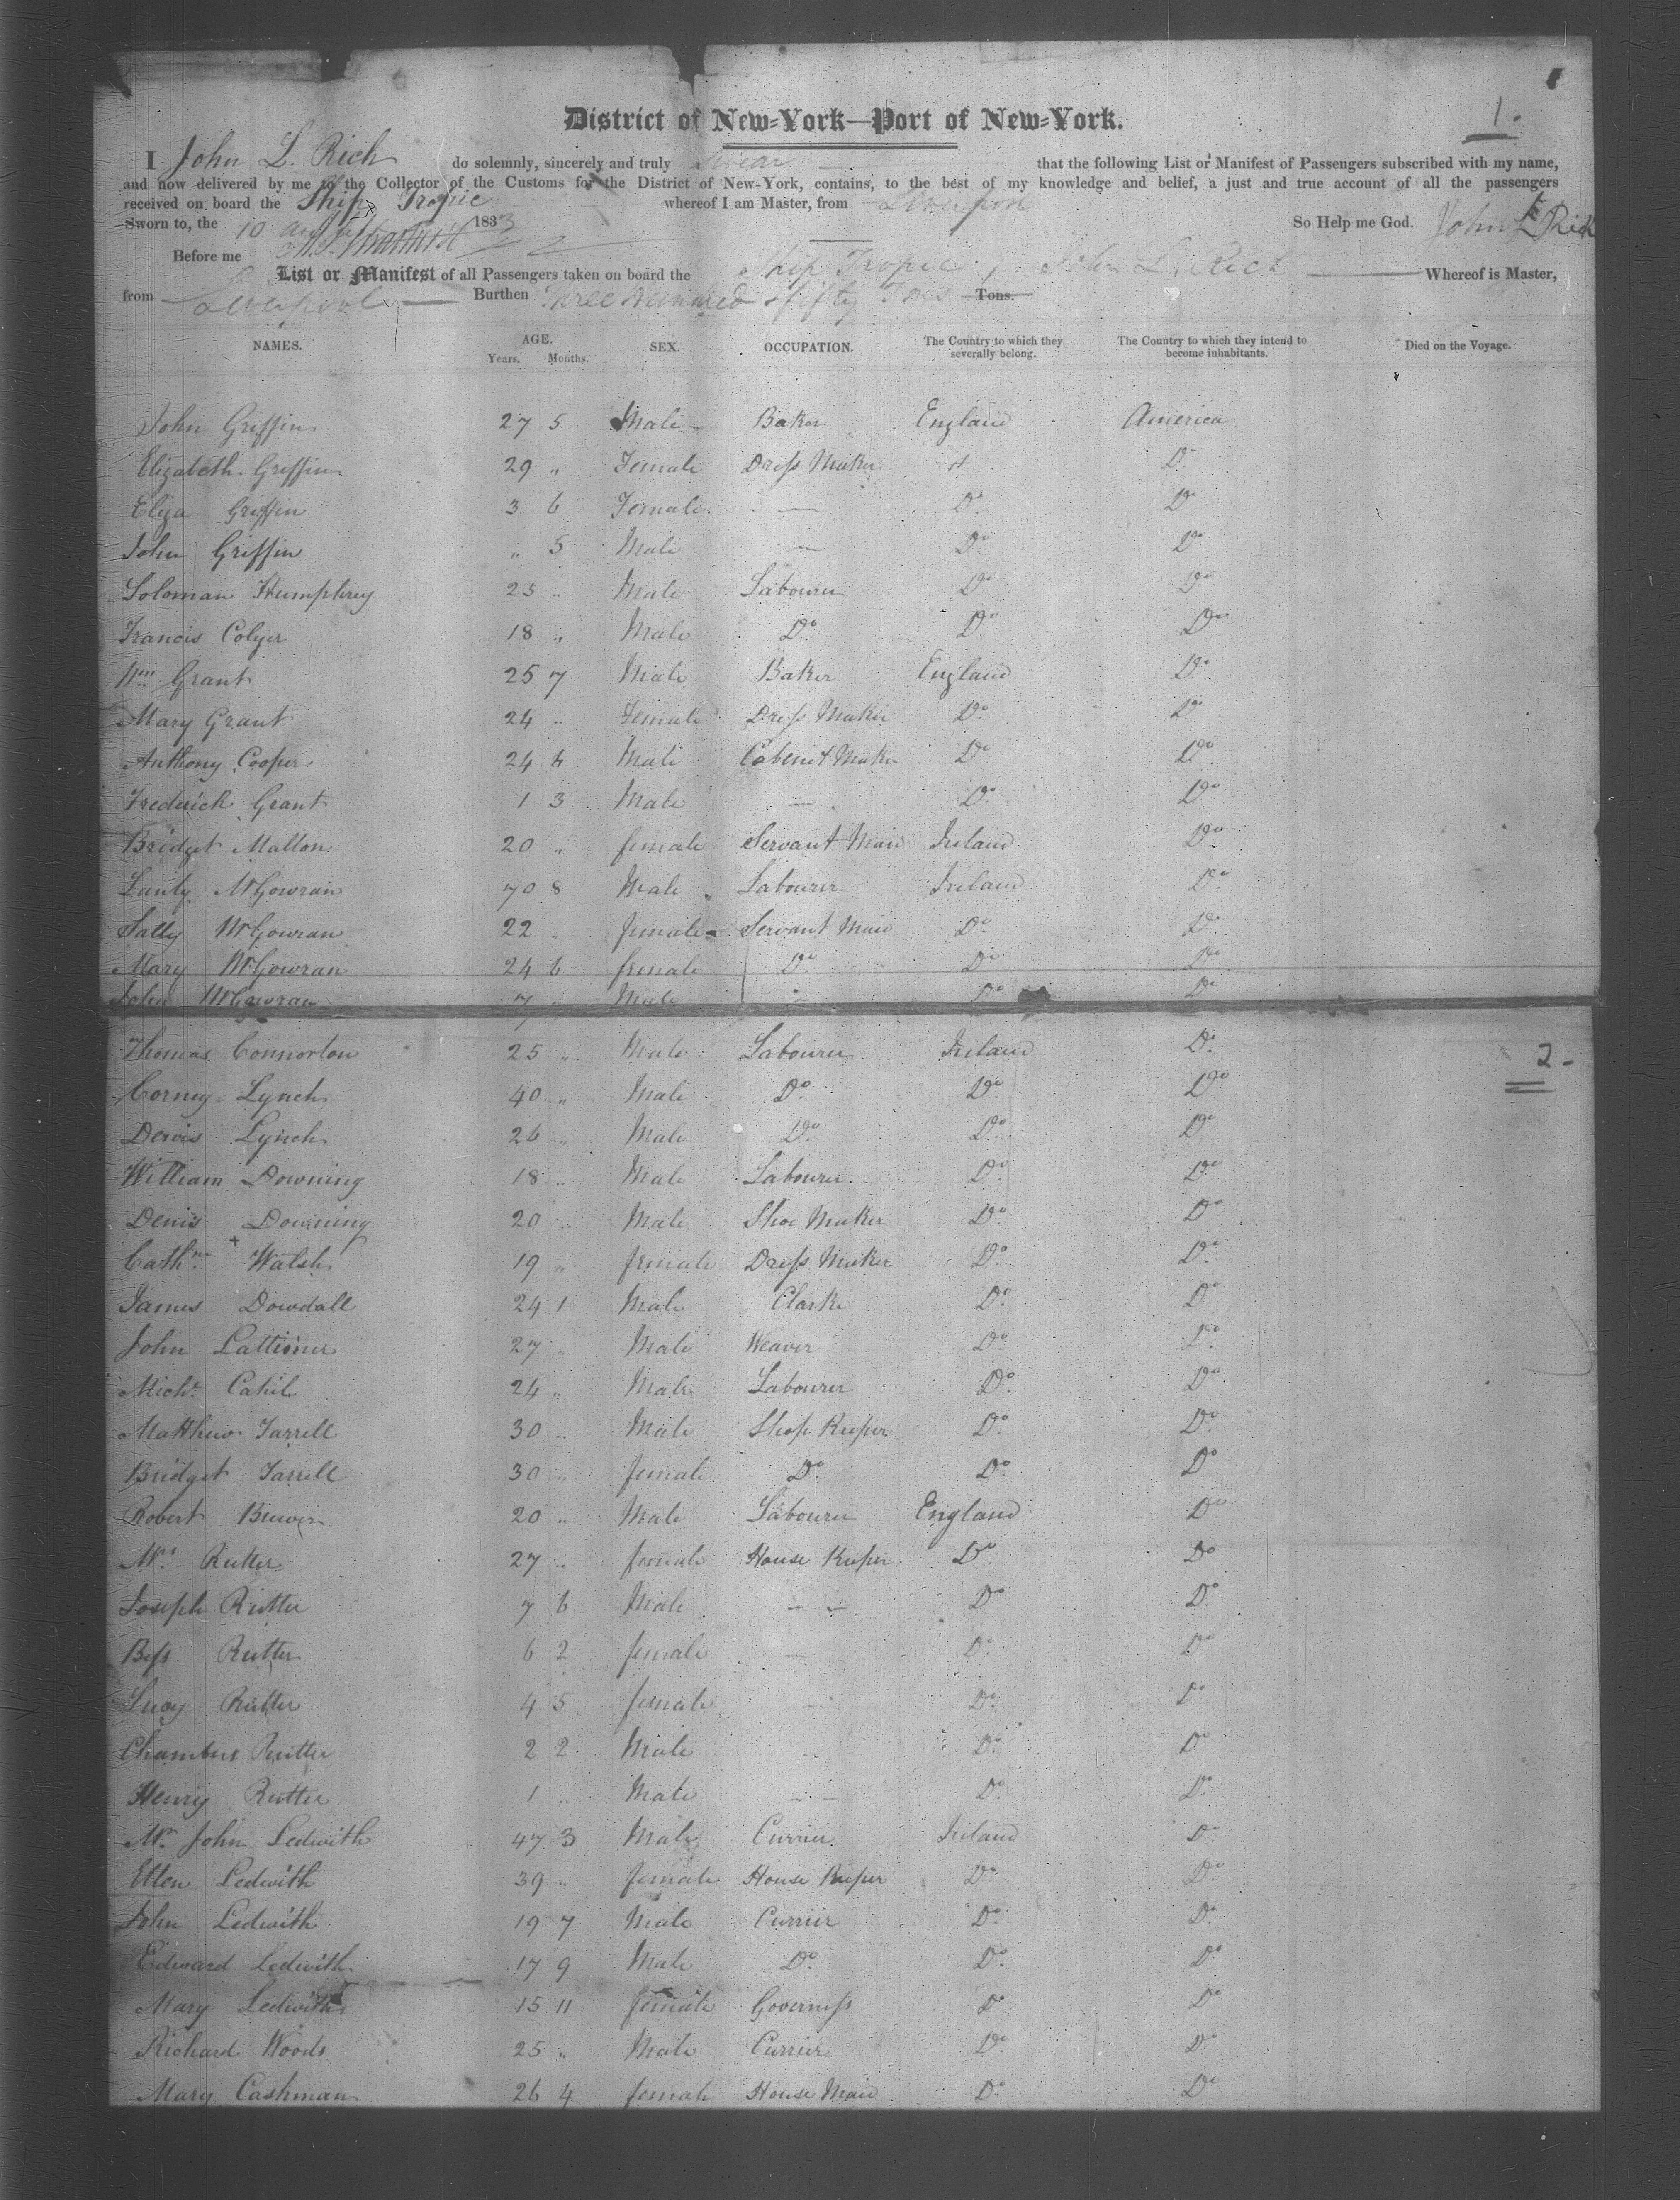 1.
District of New-York—Port of New-York.
I John L. Rich do solemnly, sincerely and truly swear that the following List or Manifest of Passengers subscribed with my name,
and now delivered by me to the Collector of the Customs for the District of New-York, contains, to the best of my knowledge and belief, a just and true account of all the passengers
received on board the Ship Tropic whereof I am Master, from Liverpool
Sworn to, the 10 1833 So Help me God. John L Rich
Before me
List or Manifest of all Passengers taken on board the Ship Tropic, John L. Rich Whereof is Master,
from Liverpool Burthen Three Hundred & fifty Tons Tons.
NAMES. AGE. Years. Months. SEX. OCCUPATION. The Country to which they severally belong. The Country to which they intend to become inhabitants. Died on the Voyage.
John Griffin 27 5 Male Baker England America
Elizabeth Griffin 29 „ Female Dress Maker Do
Eliza Griffin 3 6 Female — Do Do
John Griffin „ 5 Male — Do Do
Soloman Humphrey 25 „ Male Labourer Do Do
Francis Colyer 18 „ Male Do Do Do
Wm Grant 25 7 Male Baker England Do
Mary Grant 24 „ Female Dress Maker Do Do
Anthony Cooper 24 6 Male Cabenet Maker Do Do
Frederick Grant 1 3 Male — Do Do
Bridget Mallon 20 „ female Servant Maid Ireland Do
Lanty McGowran 70 8 Male Labourer Ireland Do
Sally McGowran 22 „ female Servant Maid Do Do
Mary McGowran 24 6 female Do Do Do
John McGowran 7 „ Male Do Do
Thomas Connorton 25 „ Male Labourer Ireland Do
2
Corney Lynch 40 „ Male Do Do Do
Denis Lynch 26 „ Male Do Do Do
William Downing 18 „ Male Labourer Do Do
Denis Downing 20 „ Male Shoe Maker Do Do
Cathne Walsh 19 „ female Dress Maker Do Do
James Dowdall 24 1 Male Clarke Do Do
John Lattimer 27 „ Male Weaver Do Do
Michl Cahil 24 „ Male Labourer Do Do
Matthew Farrell 30 „ Male Shop Keeper Do Do
Bridget Farrell 30 „ female Do Do Do
Robert Brewer 20 „ Male Labourer England Do
Mrs Rutter 27 „ female House Keeper Do Do
Joseph Rutter 7 6 Male — Do Do
Bess Rutter 6 2 female — Do Do
Lucy Rutter 4 5 female Do Do
Chambers Rutter 2 2 Male Do Do
Henry Rutter 1 „ Male — Do Do
Mr John Ledwith 47 3 Male Currier Ireland Do
Ellen Ledwith 39 „ female House Keeper Do Do
John Ledwith 19 7 Male Currier Do Do
Edward Ledwith 17 9 Male Do Do Do
Mary Ledwith 15 11 female Governess Do Do
Richard Woods 25 „ Male Currier Do Do
Mary Cashman 26 4 female House Maid Do Do